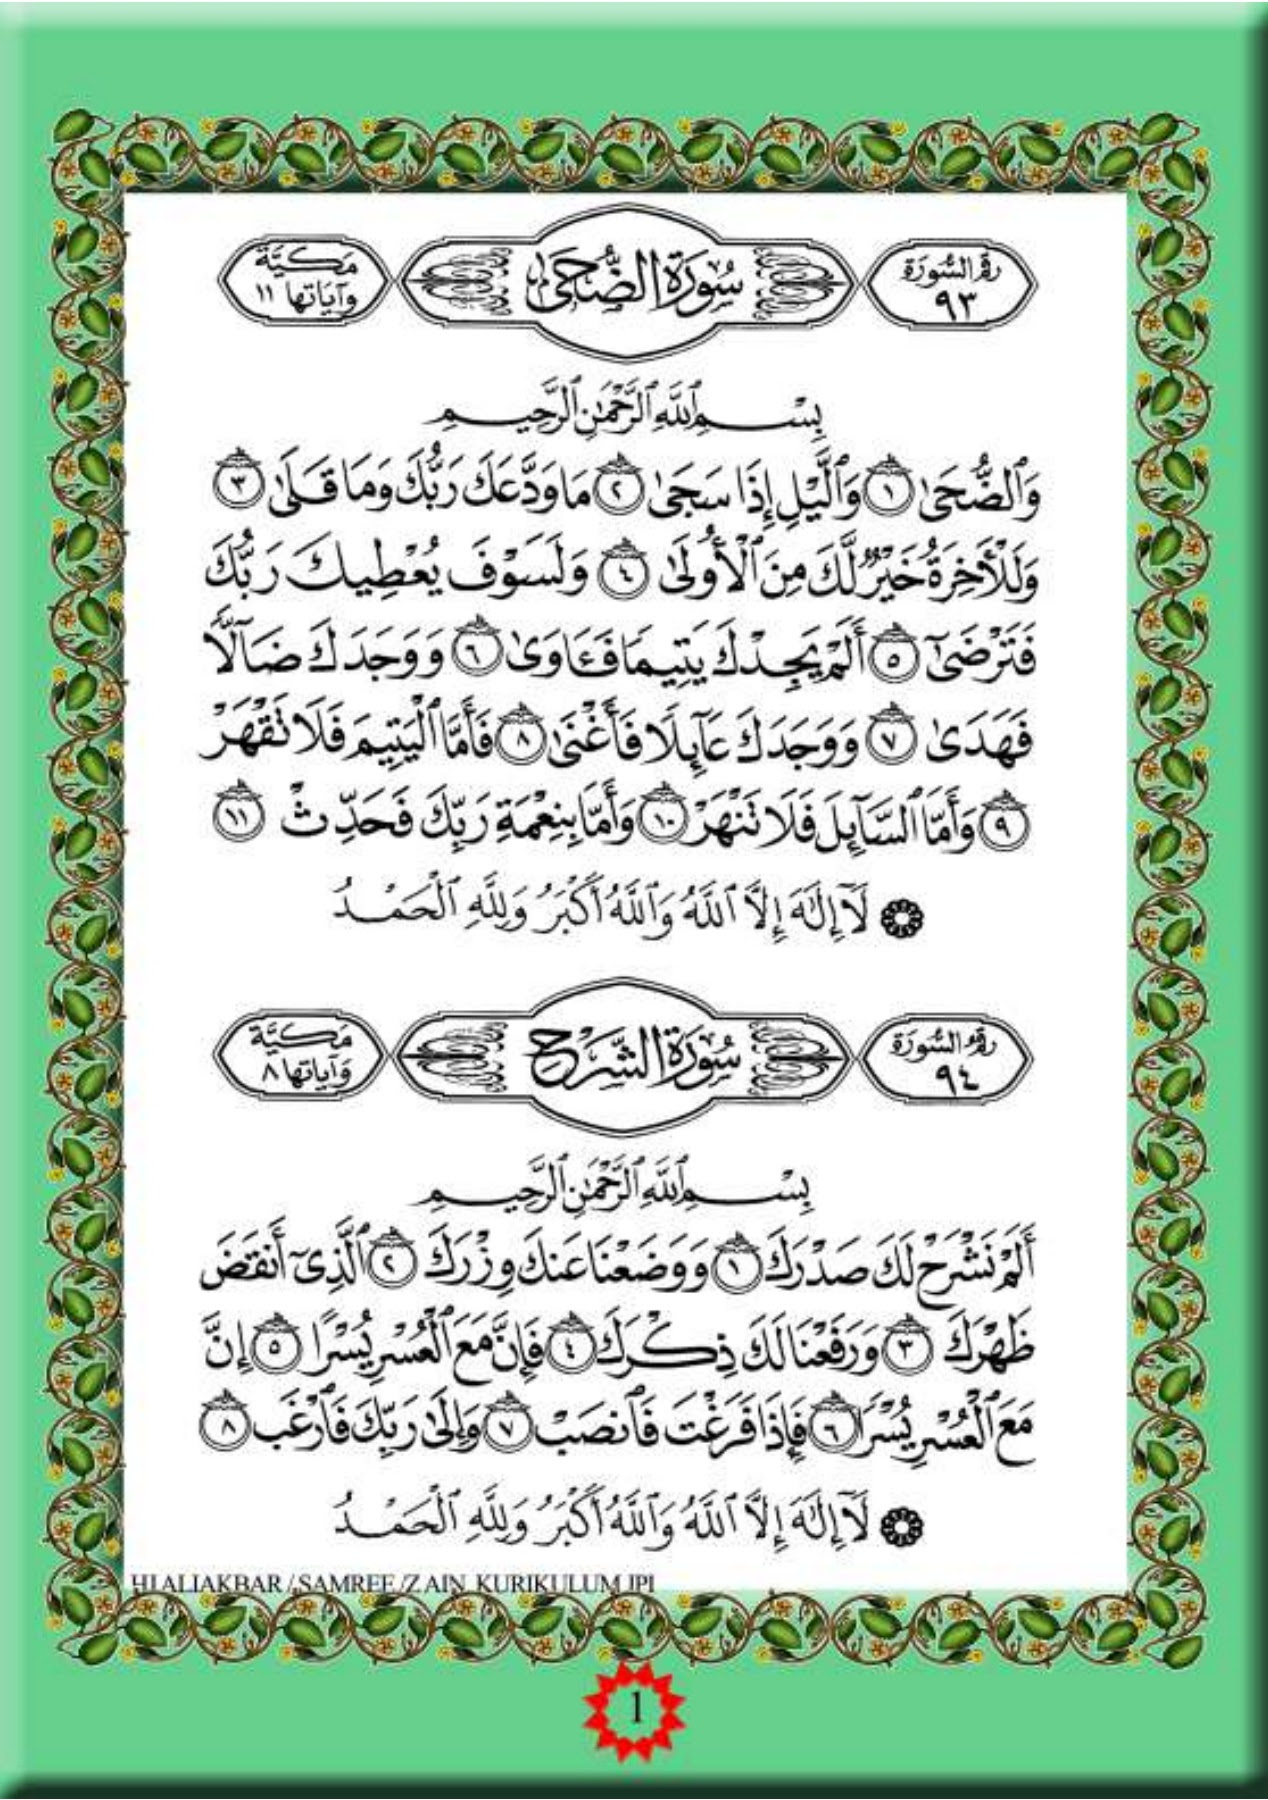 رقم السورة ٩٣
سُورَةُ الضُّحَىٰ
مَكيَّة وآياتها ١١
بِسْمِ ٱللَّهِ ٱلرَّحْمَٰنِ ٱلرَّحِيمِ
وَٱلضُّحَىٰ ١ وَٱلَّيْلِ إِذَا سَجَىٰ ٢ مَا وَدَّعَكَ رَبُّكَ وَمَا قَلَىٰ ٣
وَلَلْأَخِرَةُ خَيْرٌ لَّكَ مِنَ ٱلْأُولَىٰ ٤ وَلَسَوْفَ يُعْطِيكَ رَبُّكَ
فَتَرْضَىٰٓ ٥ أَلَمْ يَجِدْكَ يَتِيمًا فَـَٔاوَىٰ ٦ وَوَجَدَكَ ضَآلًّا
فَهَدَىٰ ٧ وَوَجَدَكَ عَآئِلًا فَأَغْنَىٰ ٨ فَأَمَّا ٱلْيَتِيمَ فَلَا تَقْهَرْ
٩ وَأَمَّا ٱلسَّآئِلَ فَلَا تَنْهَرْ ١٠ وَأَمَّا بِنِعْمَةِ رَبِّكَ فَحَدِّثْ ١١
لَآ إِلَٰهَ إِلَّا ٱللَّهُ وَٱللَّهُ أَكْبَرُ وَلِلَّهِ ٱلْحَمْدُ
رقم السورة ٩٤
سُورَةُ الشَّرْحِ
مَكيَّة وآياتها ٨
بِسْمِ ٱللَّهِ ٱلرَّحْمَٰنِ ٱلرَّحِيمِ
أَلَمْ نَشْرَحْ لَكَ صَدْرَكَ ١ وَوَضَعْنَا عَنكَ وِزْرَكَ ٢ ٱلَّذِىٓ أَنقَضَ
ظَهْرَكَ ٣ وَرَفَعْنَا لَكَ ذِكْرَكَ ٤ فَإِنَّ مَعَ ٱلْعُسْرِ يُسْرًا ٥ إِنَّ
مَعَ ٱلْعُسْرِ يُسْرًا ٦ فَإِذَا فَرَغْتَ فَٱنصَبْ ٧ وَإِلَىٰ رَبِّكَ فَٱرْغَب ٨
لَآ إِلَٰهَ إِلَّا ٱللَّهُ وَٱللَّهُ أَكْبَرُ وَلِلَّهِ ٱلْحَمْدُ
HJ ALIAKBAR / SAMREE /ZAIN KURIKULUM JPI
1